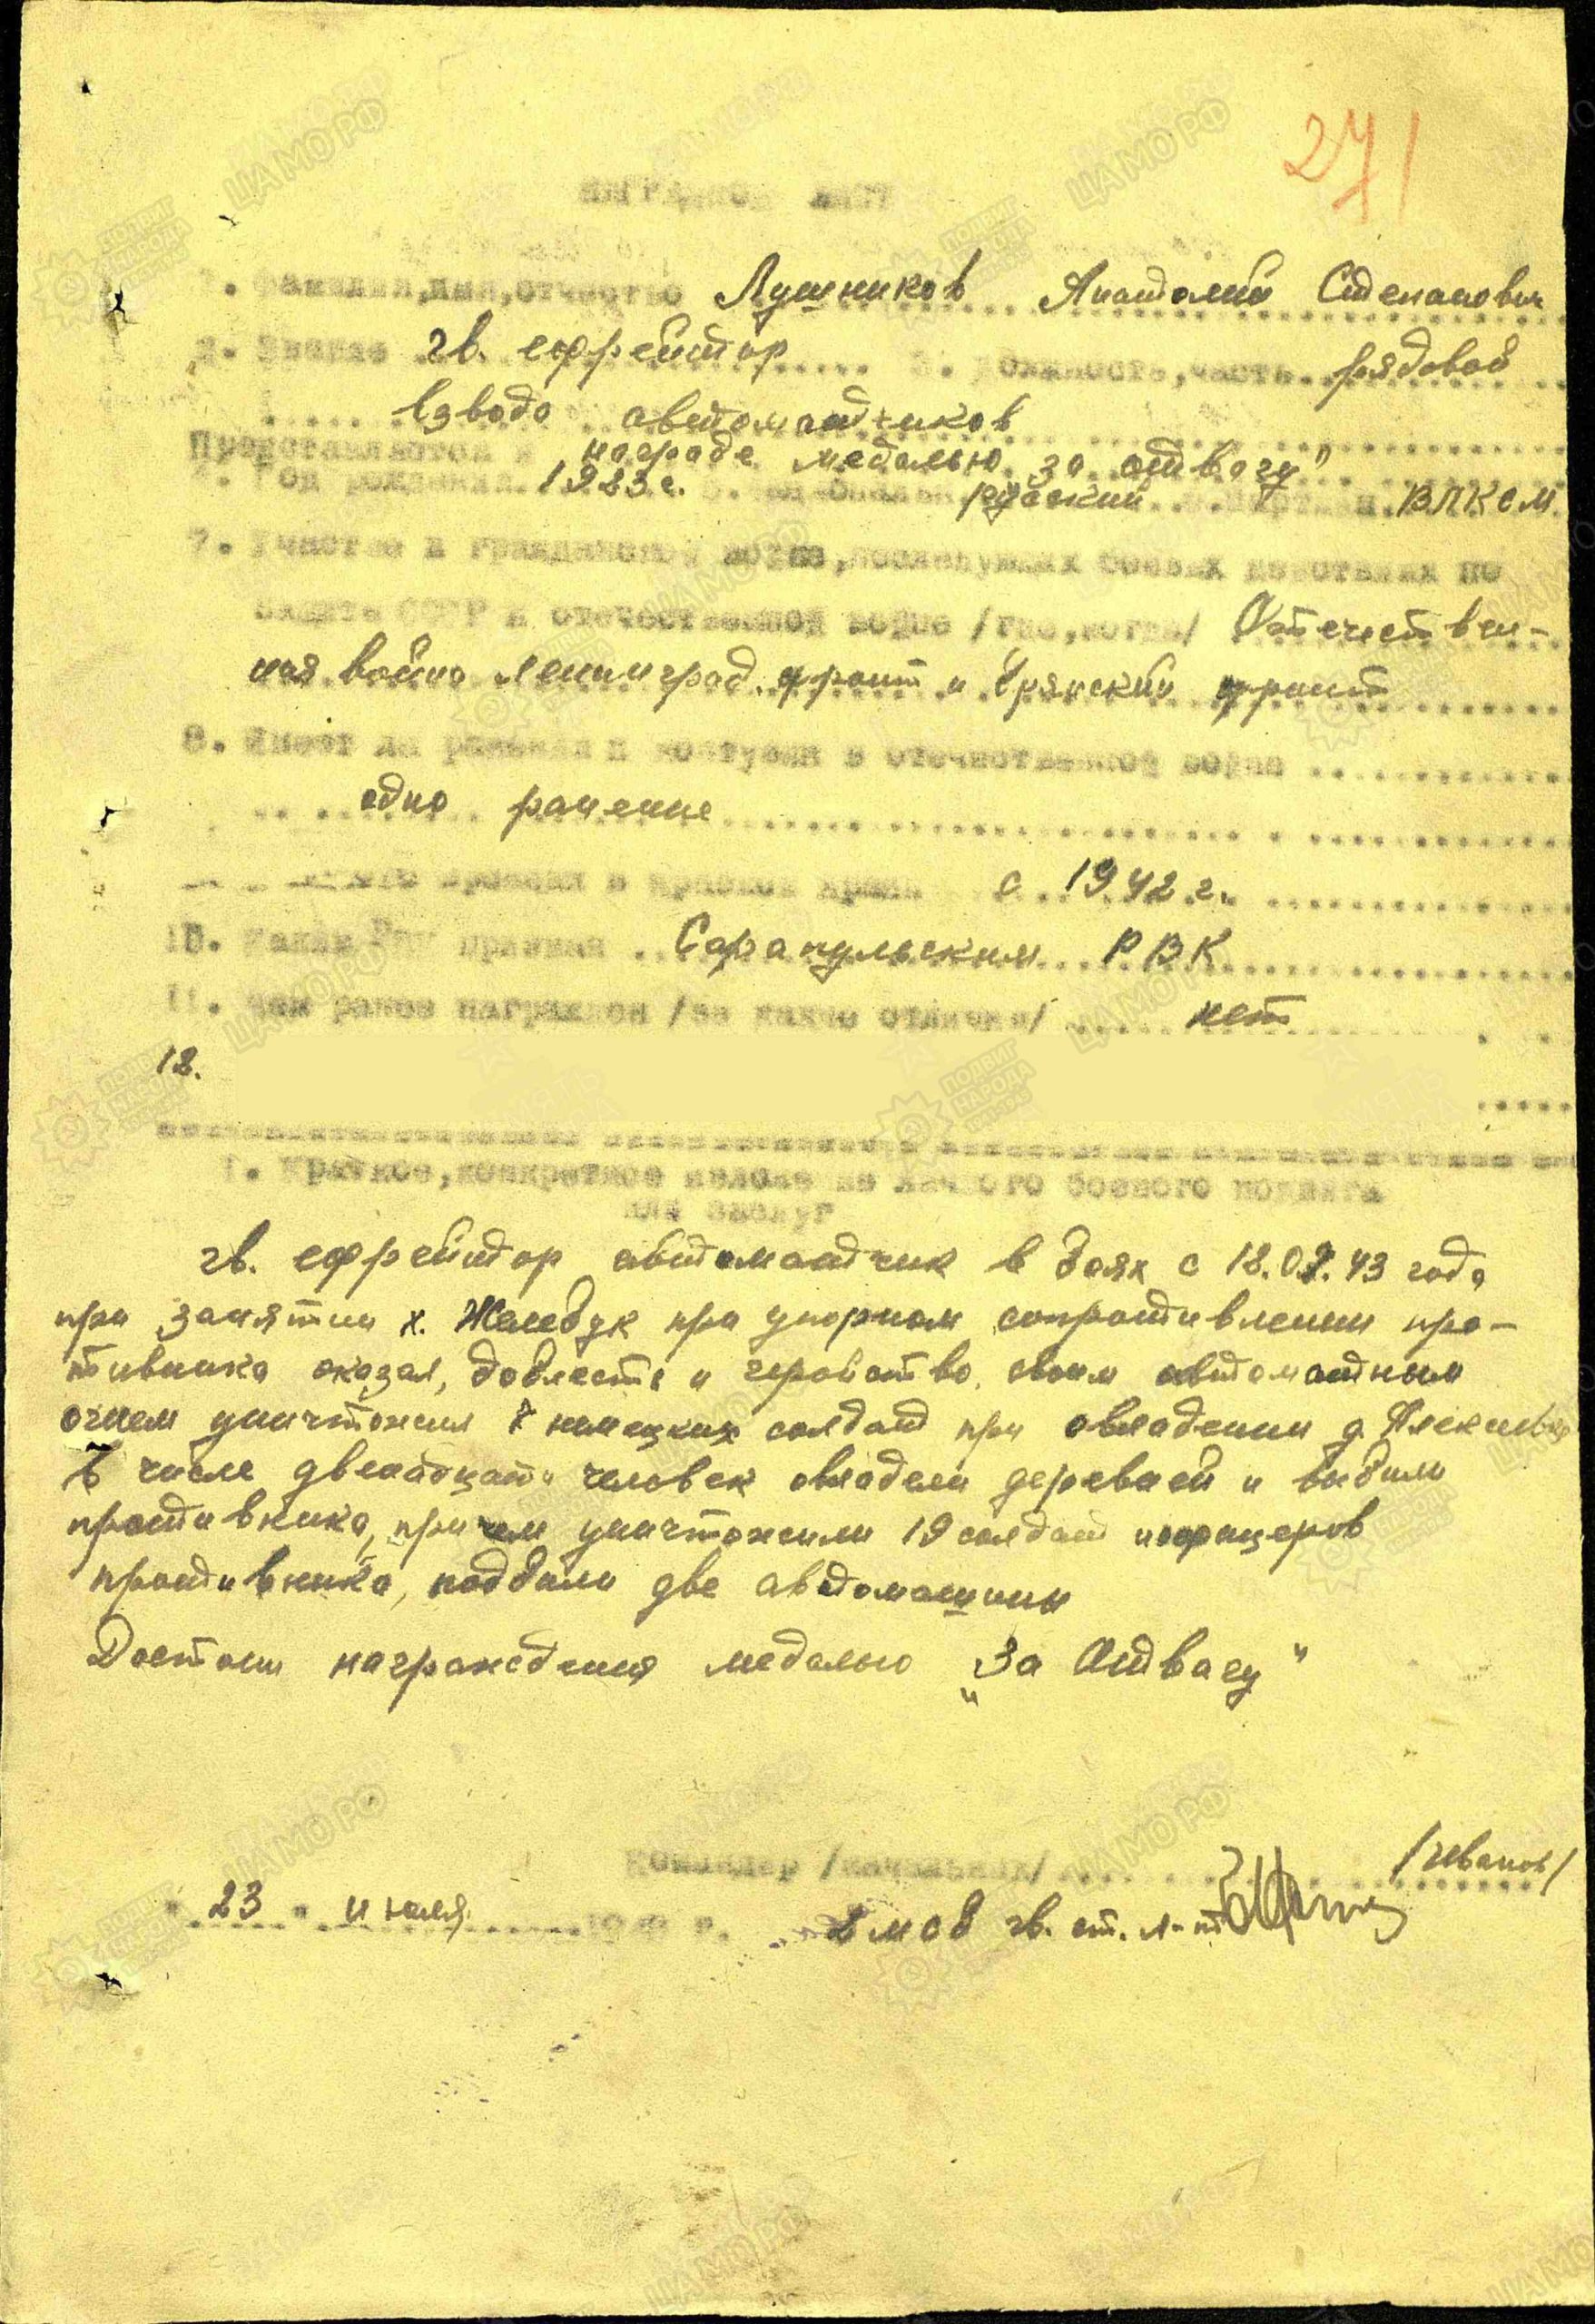 271
НАГРАДНОЙ ЛИСТ
1. Фамилия,имя,отчество Лушников Анатолий Степанович
2. Звание гв. ефрейтор 3. Должность,часть рядовой
взвода автоматчиков
Представляется к награде медалью „за отвагу"
4. Год рождения 1923 г. русский ВЛКСМ
7. Участие в гражданской войне,последующих боевых действиях по
защите СССР и отечественной войне /где,когда/ Отечествен-
ная война Ленинград. фронт и Брянский фронт
8. Имеет ли ранения и контузии в отечественной войне
одно ранение
в Красной Армии с 1942 г.
10. Каким РВК призван Сарапульским РВК
11. Чем ранее награжден /за какие отличия/ нет
12.
1. Краткое,конкретное изложение личного боевого подвига
или заслуг
гв. ефрейтор автоматчик в боях с 12.07.43 года
при занятии х. Желебук при упорном сопротивлении про-
тивника оказал, доблесть и геройство, своим автоматным
огнем уничтожил немецких солдат при овладении д.
В числе двенадцати человек овладели деревней и выбили
противника, причем уничтожили 19 солдат и офицеров
противника, подбили две автомашины
Достоин награждения медалью „За Отвагу"
Командир /начальник/ /Иванов/
"23" июля 194 г. гв. ст. л-т